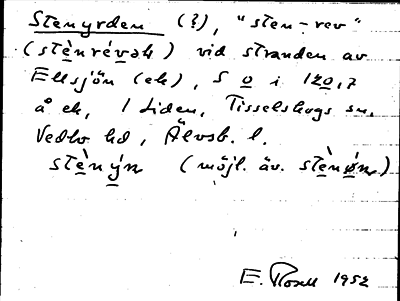 Stenyrden (?), "sten-rev"
(stènrévək) vid stranden av
Ellsjön (ek), S o i Izo,7
å ek, i Liden, Tisselskogs sn,
Vedbo hd, Älvsb. l.
stèný̀n (möjl. äv. stènøn)
E. Rosell 1952